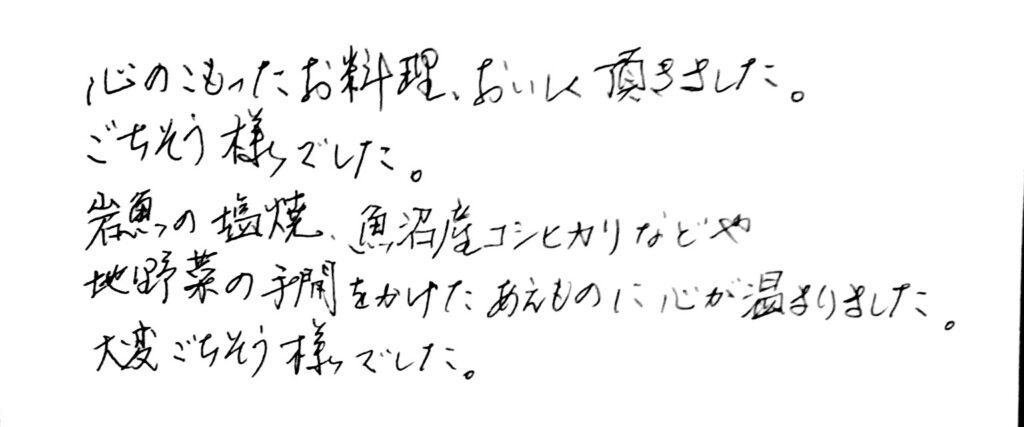 心のこもったお料理、おいしく頂きました。
ごちそう様でした。
岩魚の塩焼、魚沼産コシヒカリなどや
地野菜の手間をかけたあえものに心が温まりました。
大変ごちそう様でした。